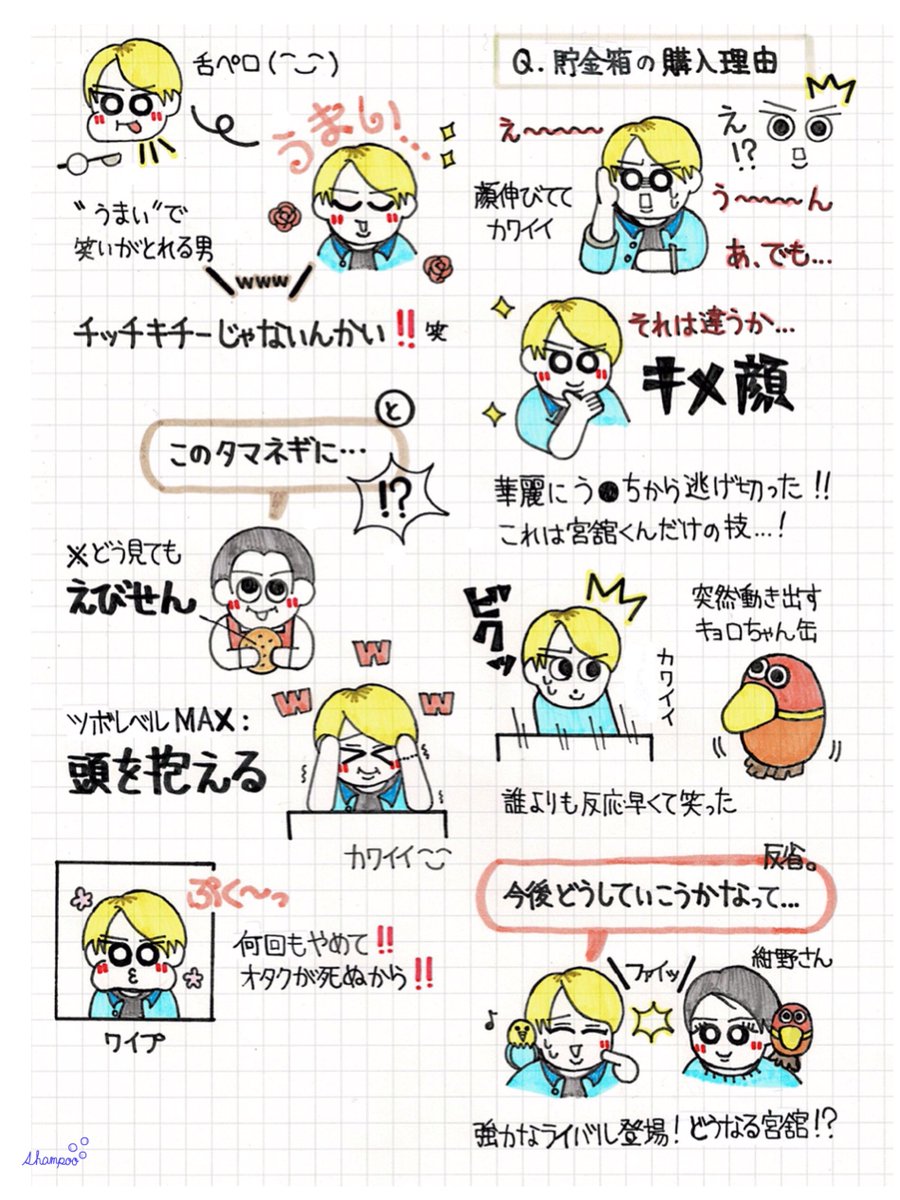 舌ペロ(⌒‿⌒)
うまい…
"うまい"で
笑いがとれる男
www
チッチキチーじゃないんかい‼笑
と
このタマネギに…
!?
※どう見ても
えびせん
W
W
W
ツボレベルMAX:
頭を抱える
カワイイ
ぷく〜っ
何回もやめて‼
オタクが死ぬから‼
ワイプ
Q.貯金箱の購入理由
え〜〜〜〜
え
!?
顔伸びてて
カワイイ
う〜〜〜ん
あ、でも…
それは違うか…
キメ顔
華麗にう●ちから逃げ切った!!
これは宮舘くんだけの技…!
ビクッ
突然動き出す
キョロちゃん缶
カワイイ
誰よりも反応早くて笑った
反省。
今後どうしていこうかなって…
ファイッ
紺野さん
♪
強力なライバル登場!どうなる宮舘!?
Shampoo